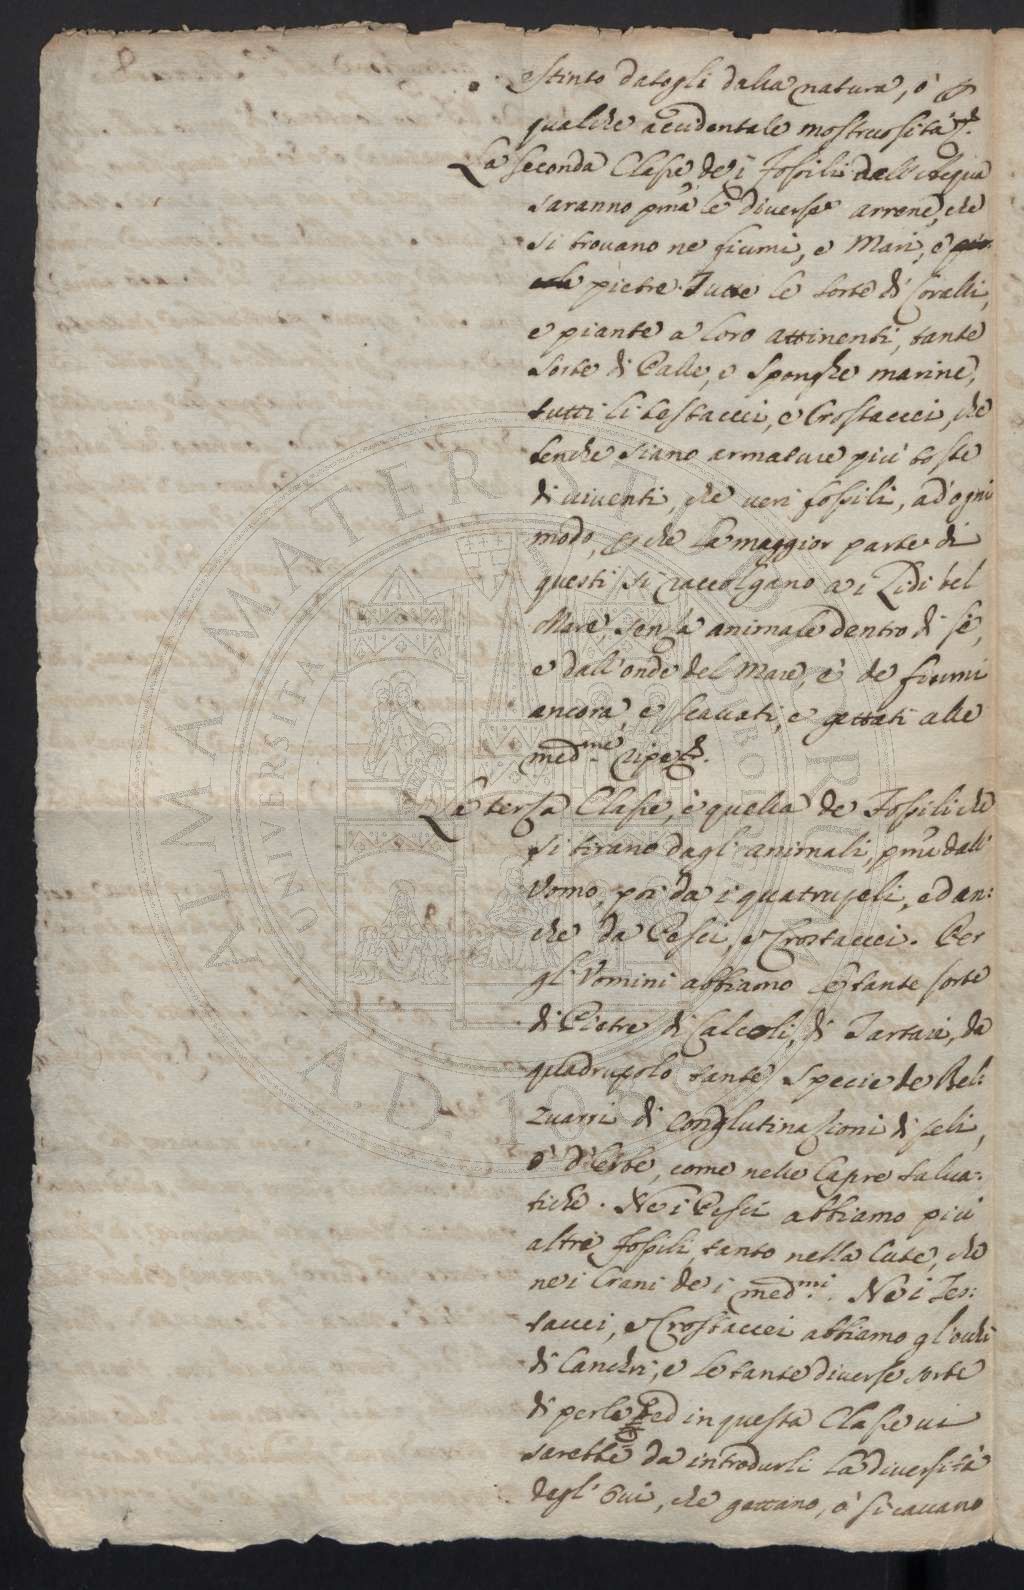 estinto datogli dalla natura, ò p
qualche accidentale mostruosità
La seconda Classe de i Fossili dell'Acqua
saranno pma le diverse arrene, che
si trovano ne fiumi, e Mari, e
pietre. Tutte le sorte di Coralli,
e piante a loro attinenti, tante
sorte di Palle, e Sponghe marine,
tutti li testacei, e Crostaccei, che
benche siano armature più toste
di viventi, che veri fossili, ad ogni
modo, p che la maggior parte di
questi si raccolgano a i Lidi del
Mare, senza animale dentro di se,
e dall'onde del Mare, e de fiumi
ancora, e scavati, e gettati alle
med.me ripe
La terza Classe, è quella de Fossili che
si tirano dagl'animali, pma dall'
Uomo, poi da i quatrupeli, ed an:
che da Pesci, e Crostaccei. Per
gl'Uomini abbiamo le tante sorte
di Pietre di Calcoli, di Tartari, da
quadrupolo tante specie de Bel:
zuarri di conglutinazioni di peli,
ò d'erbe, come nelle Capre salva:
tiche. Ne i Pesci abbiamo più
altre fossili, tanto nella Cute, che
ne i Crani de i med.mi. Ne i Tes:
tacci, e Crostaccei abbiamo gl'occhi
di Canchri, e le tante diverse sorte
di perle, ed in questa Classe vi
sarebbe da introdurli la diversità
degl'Ovi, che gettano, ò si cavano
ALMA MATER STUDIORUM
UNIVERSITA
A.D. 1088